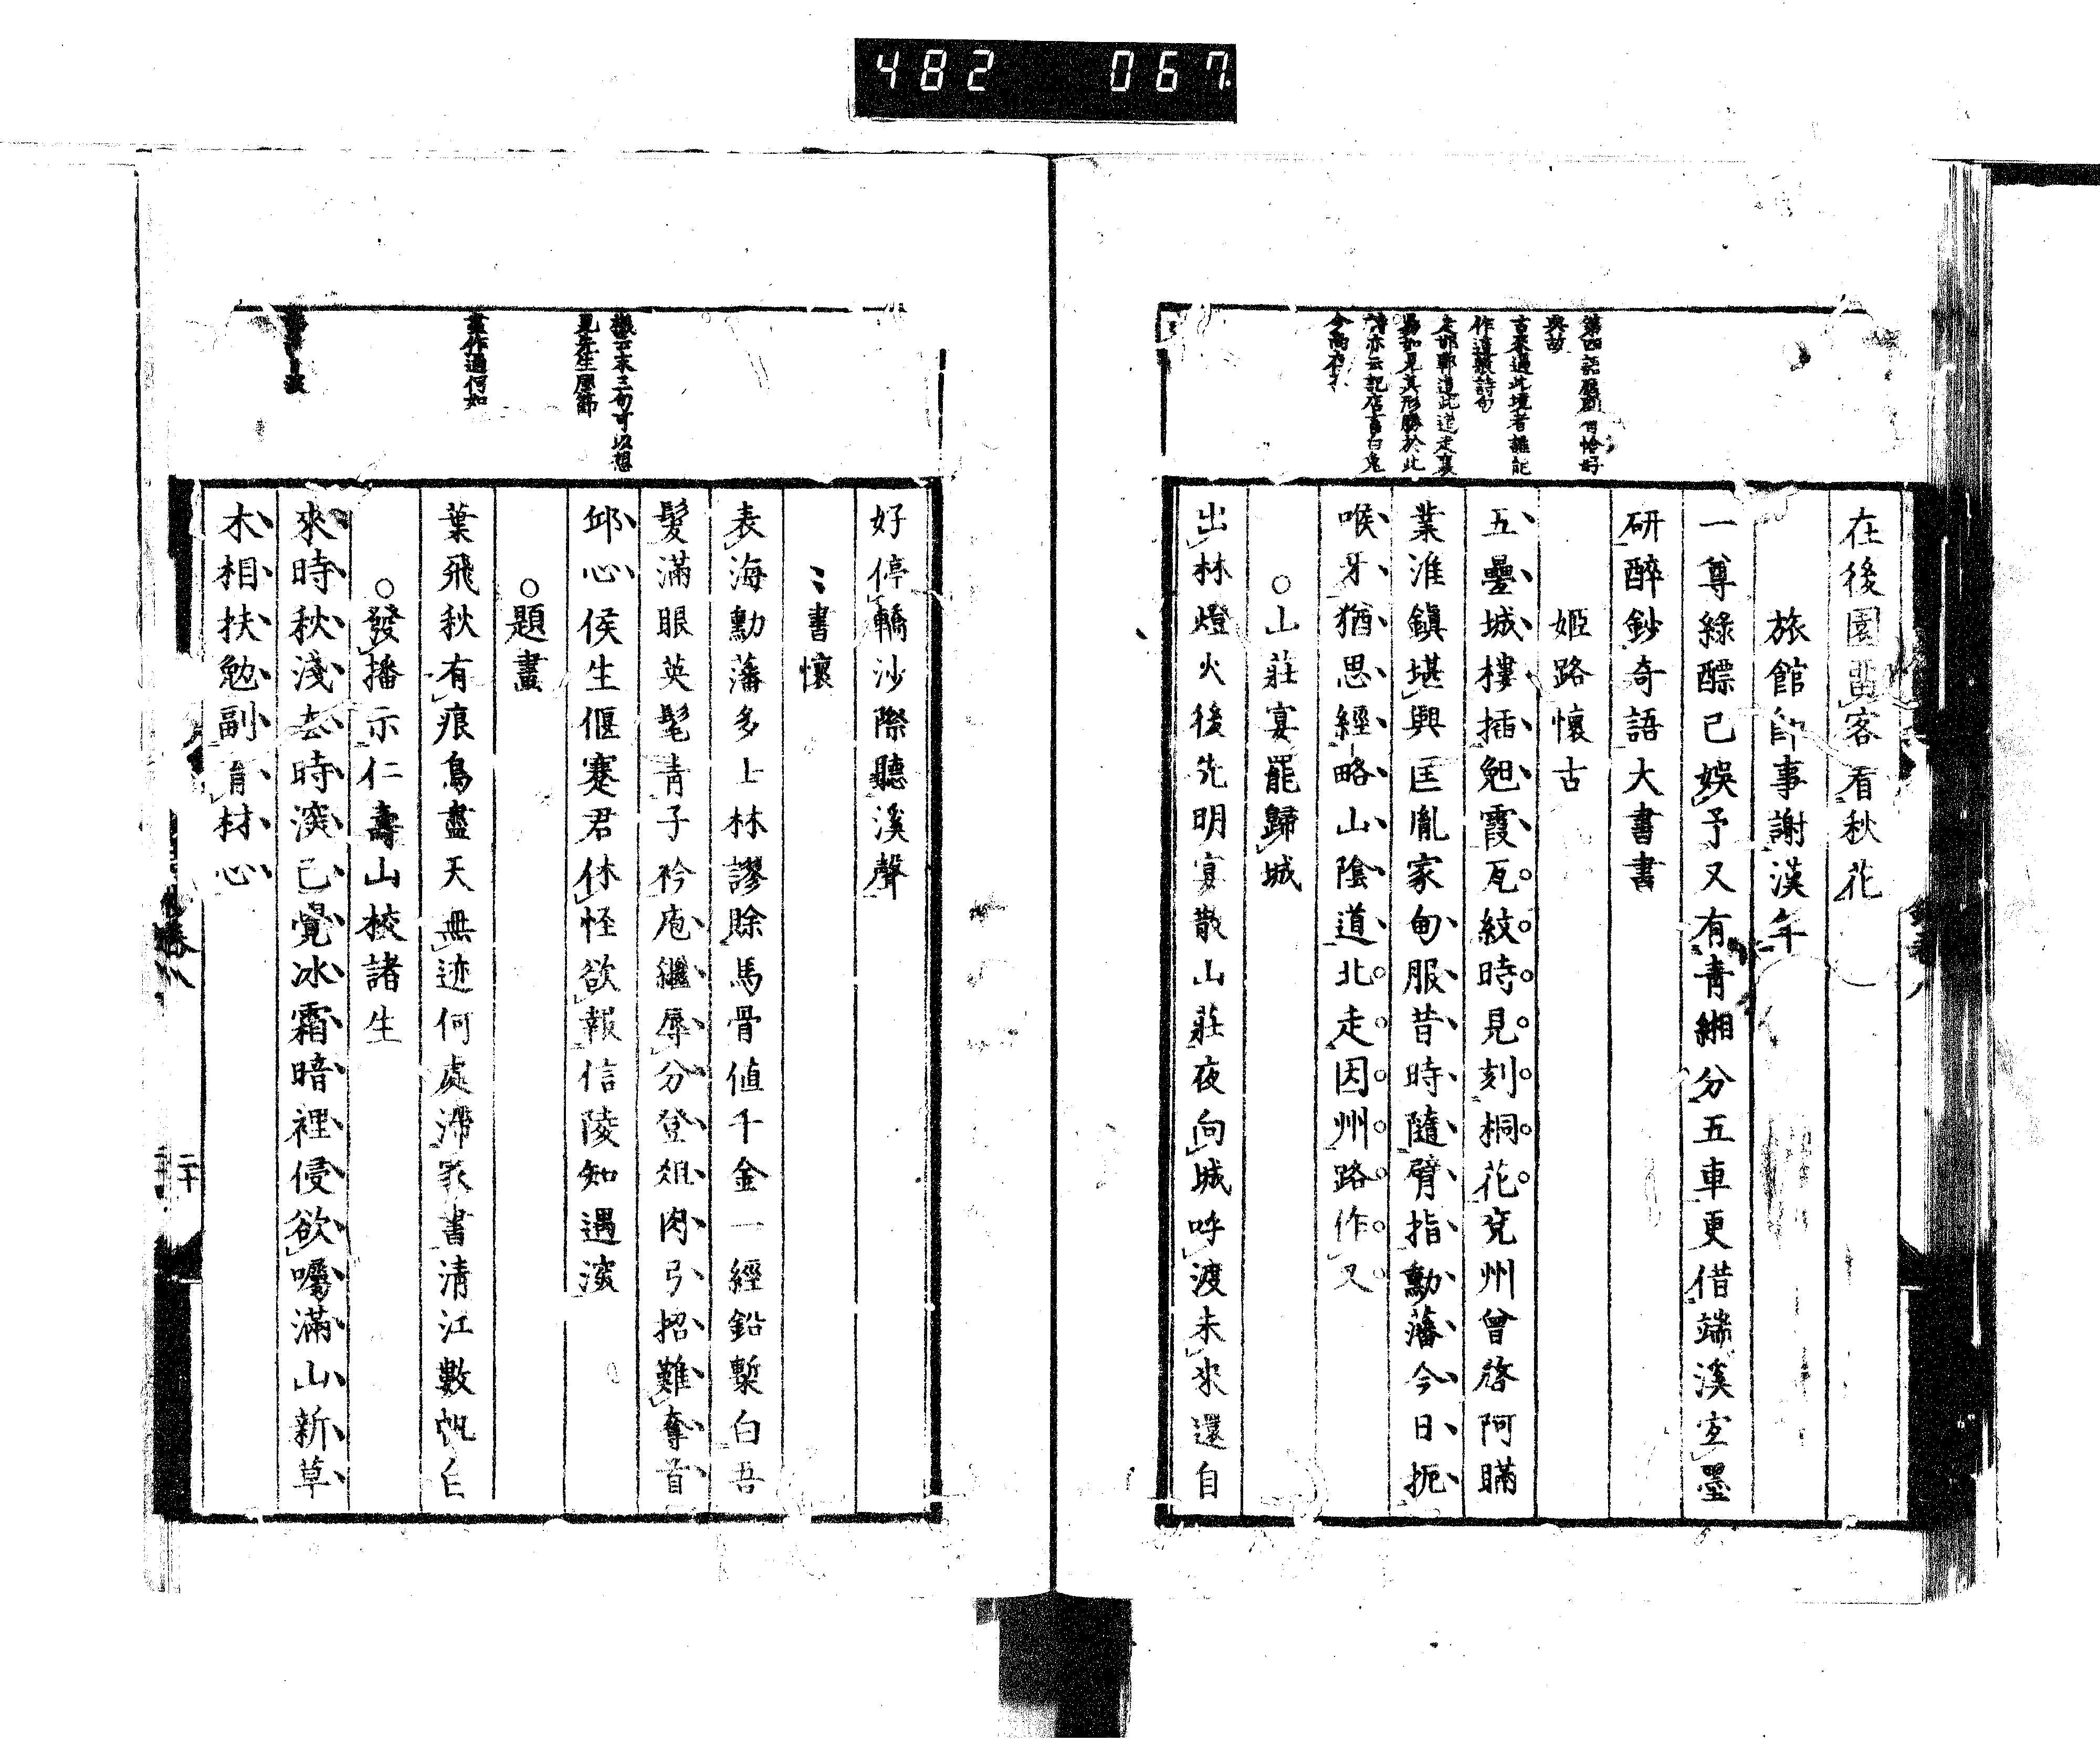 482 067
在後園留客看秋花
旅館即事謝漢年
一尊綠醥已娛予又有青緗分五車更借端溪宝墨
研醉鈔奇語大書書
姬路懷古
五疊城樓插兜霞瓦紋時見刻桐花兗州曾啓阿瞞
業淮鎮堪興匡胤家甸服昔時隨臂指勳藩今日扼
喉牙猶思經略山陰道北走因州路作叉
山莊宴罷歸城
出林燈火後先明宴散山莊夜向城呼渡未來還自
好停轎沙際聽溪聲
書懷
表海勳藩多士林謬賒馬骨値千金一經鉛槧白吾
髮滿眼英髦青子衿庖繼辱分登俎肉弓招難奪首
邱心侯生偃蹇君休怪欲報信陵知遇深
題畫
葉飛秋有痕鳥盡天無迹何處滯家書清江數帆白
發播示仁壽山校諸生
來時秋淺去時深已覺冰霜暗裡侵欲囑滿山新草
木相扶勉副育材心
第四話
古來過此境者誰能
作這般詩句
易如見其形勝於此
檄云末三句可以想
見先生風節
畫作過何如
二十